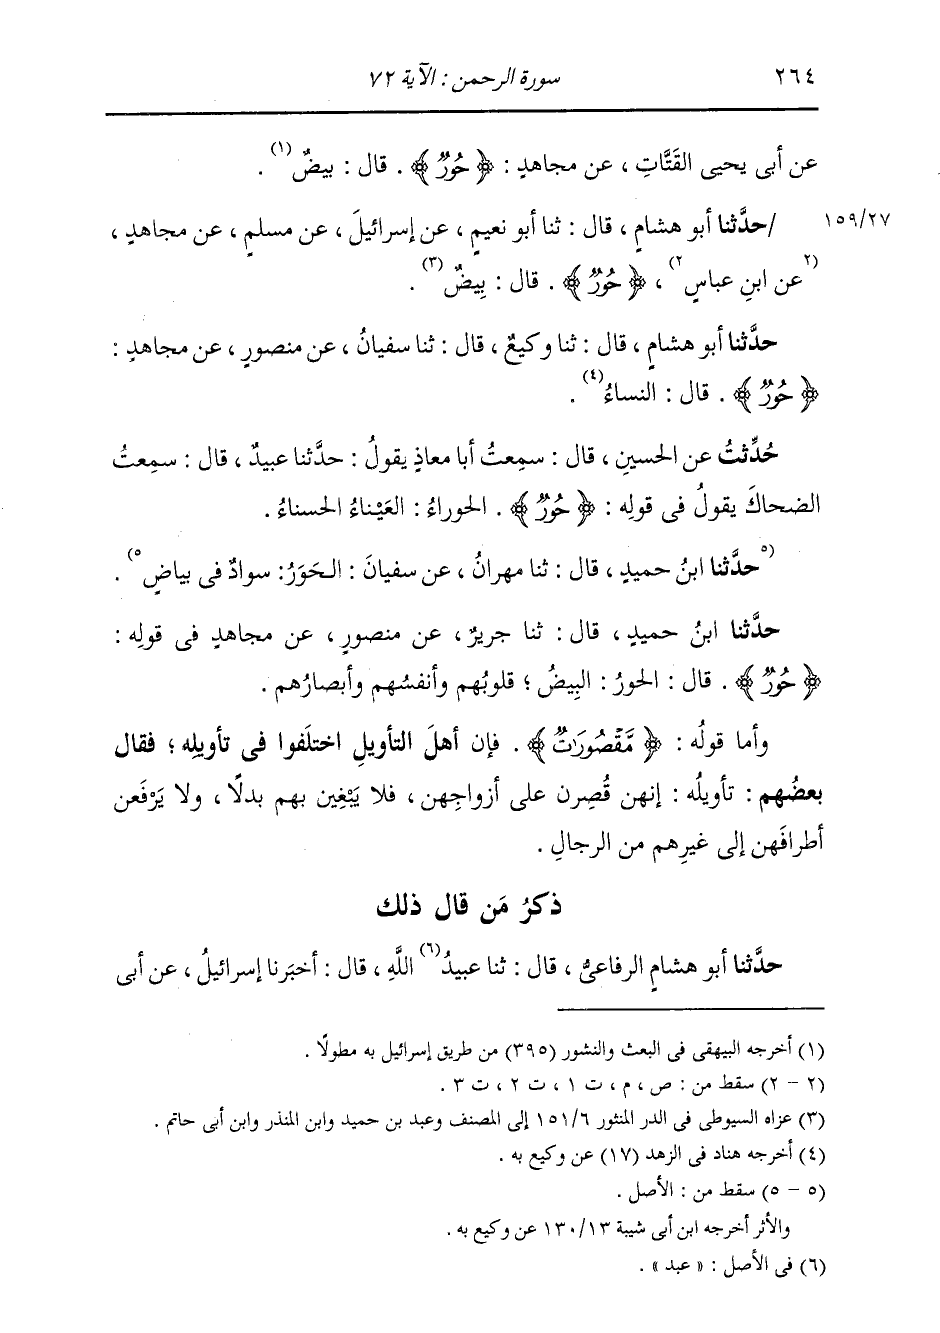 ٢٦٤ سورة الرحمن : الآية ٧٢
عن أبى يحيى القَتَّاتِ ، عن مجاهدٍ : ﴿ حُورٌ ﴾ . قال : بيضٌ(١) .
١٥٩/٢٧ /حدَّثنا أبو هشامٍ ، قال : ثنا أبو نعيمٍ ، عن إسرائيلَ ، عن مسلمٍ ، عن مجاهدٍ ،
(٢عن ابنِ عباسٍ٢) ، ﴿ حُورٌ ﴾ . قال : بِيضٌ(٣) .
حدَّثنا أبو هشامٍ ، قال : ثنا وكيعٌ ، قال : ثنا سفيانُ ، عن منصورٍ ، عن مجاهدٍ :
﴿ حُورٌ ﴾ . قال : النساءُ(٤) .
حُدِّثتُ عن الحسينِ ، قال : سمِعتُ أبا معاذٍ يقولُ : حدَّثنا عبيدٌ ، قال : سمِعتُ
الضحاكَ يقولُ فى قولِه : ﴿ حُورٌ ﴾ . الحوراءُ : العَيْناءُ الحسناءُ .
(٥حدَّثنا ابنُ حميدٍ ، قال : ثنا مهرانُ ، عن سفيانَ : الحَوَرُ : سوادٌ فى بياضٍ٥) .
حدَّثنا ابنُ حميدٍ ، قال : ثنا جريرٌ ، عن منصورٍ ، عن مجاهدٍ فى قولِه :
﴿ حُورٌ ﴾ . قال : الحورُ : البِيضُ ؛ قلوبُهم وأنفسُهم وأبصارُهم .
وأما قولُه : ﴿ مَّقْصُورَٰتٌ ﴾ . فإن أهلَ التأويلِ اختلَفوا فى تأويلِه ؛ فقال
بعضُهم : تأويلُه : إنهن قُصِرن على أزواجِهن ، فلا يَبْغِين بهم بدلًا ، ولا يَرْفَعن
أطرافَهن إلى غيرِهم من الرجالِ .
ذكرُ مَن قال ذلك
حدَّثنا أبو هشامٍ الرفاعىُّ ، قال : ثنا عبيدُ(٦) اللَّهِ ، قال : أخبَرنا إسرائيلُ ، عن أبى
(١) أخرجه البيهقى فى البعث والنشور (٣٩٥) من طريق إسرائيل به مطولًا .
(٢ - ٢) سقط من : ص ، م ، ت ١ ، ت ٢ ، ت ٣ .
(٣) عزاه السيوطى فى الدر المنثور ١٥١/٦ إلى المصنف وعبد بن حميد وابن المنذر وابن أبى حاتم .
(٤) أخرجه هناد فى الزهد (١٧) عن وكيع به .
(٥ - ٥) سقط من : الأصل .
والأثر أخرجه ابن أبى شيبة ١٣٠/١٣ عن وكيع به .
(٦) فى الأصل : « عبد » .